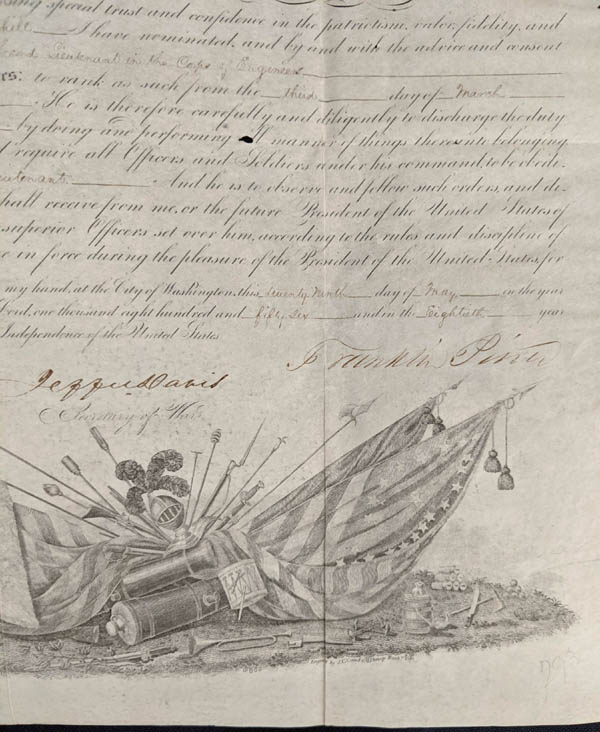 special trust and confidence in the patriotism, valor, fidelity, and
I have nominated, and by and with the advice and consent
Second Lieutenant in the Corps of Engineers
to rank as such from the third day of March
He is therefore carefully and diligently to discharge the duty
by doing and performing all manner of things thereunto belonging.
require all Officers and Soldiers under his command to be obedi-
Lieutenant. And he is to observe and follow such orders, and di-
shall receive from me, or the future President of the United States of
superior Officers set over him, according to the rules and discipline of
in force during the pleasure of the President of the United States, for
my hand, at the City of Washington, this Twenty Ninth day of May in the year
Lord, one thousand eight hundred and fifty six and in the Eightieth year
Independence of the United States
Franklin Pierce
Jeffer Davis
Secretary of War.